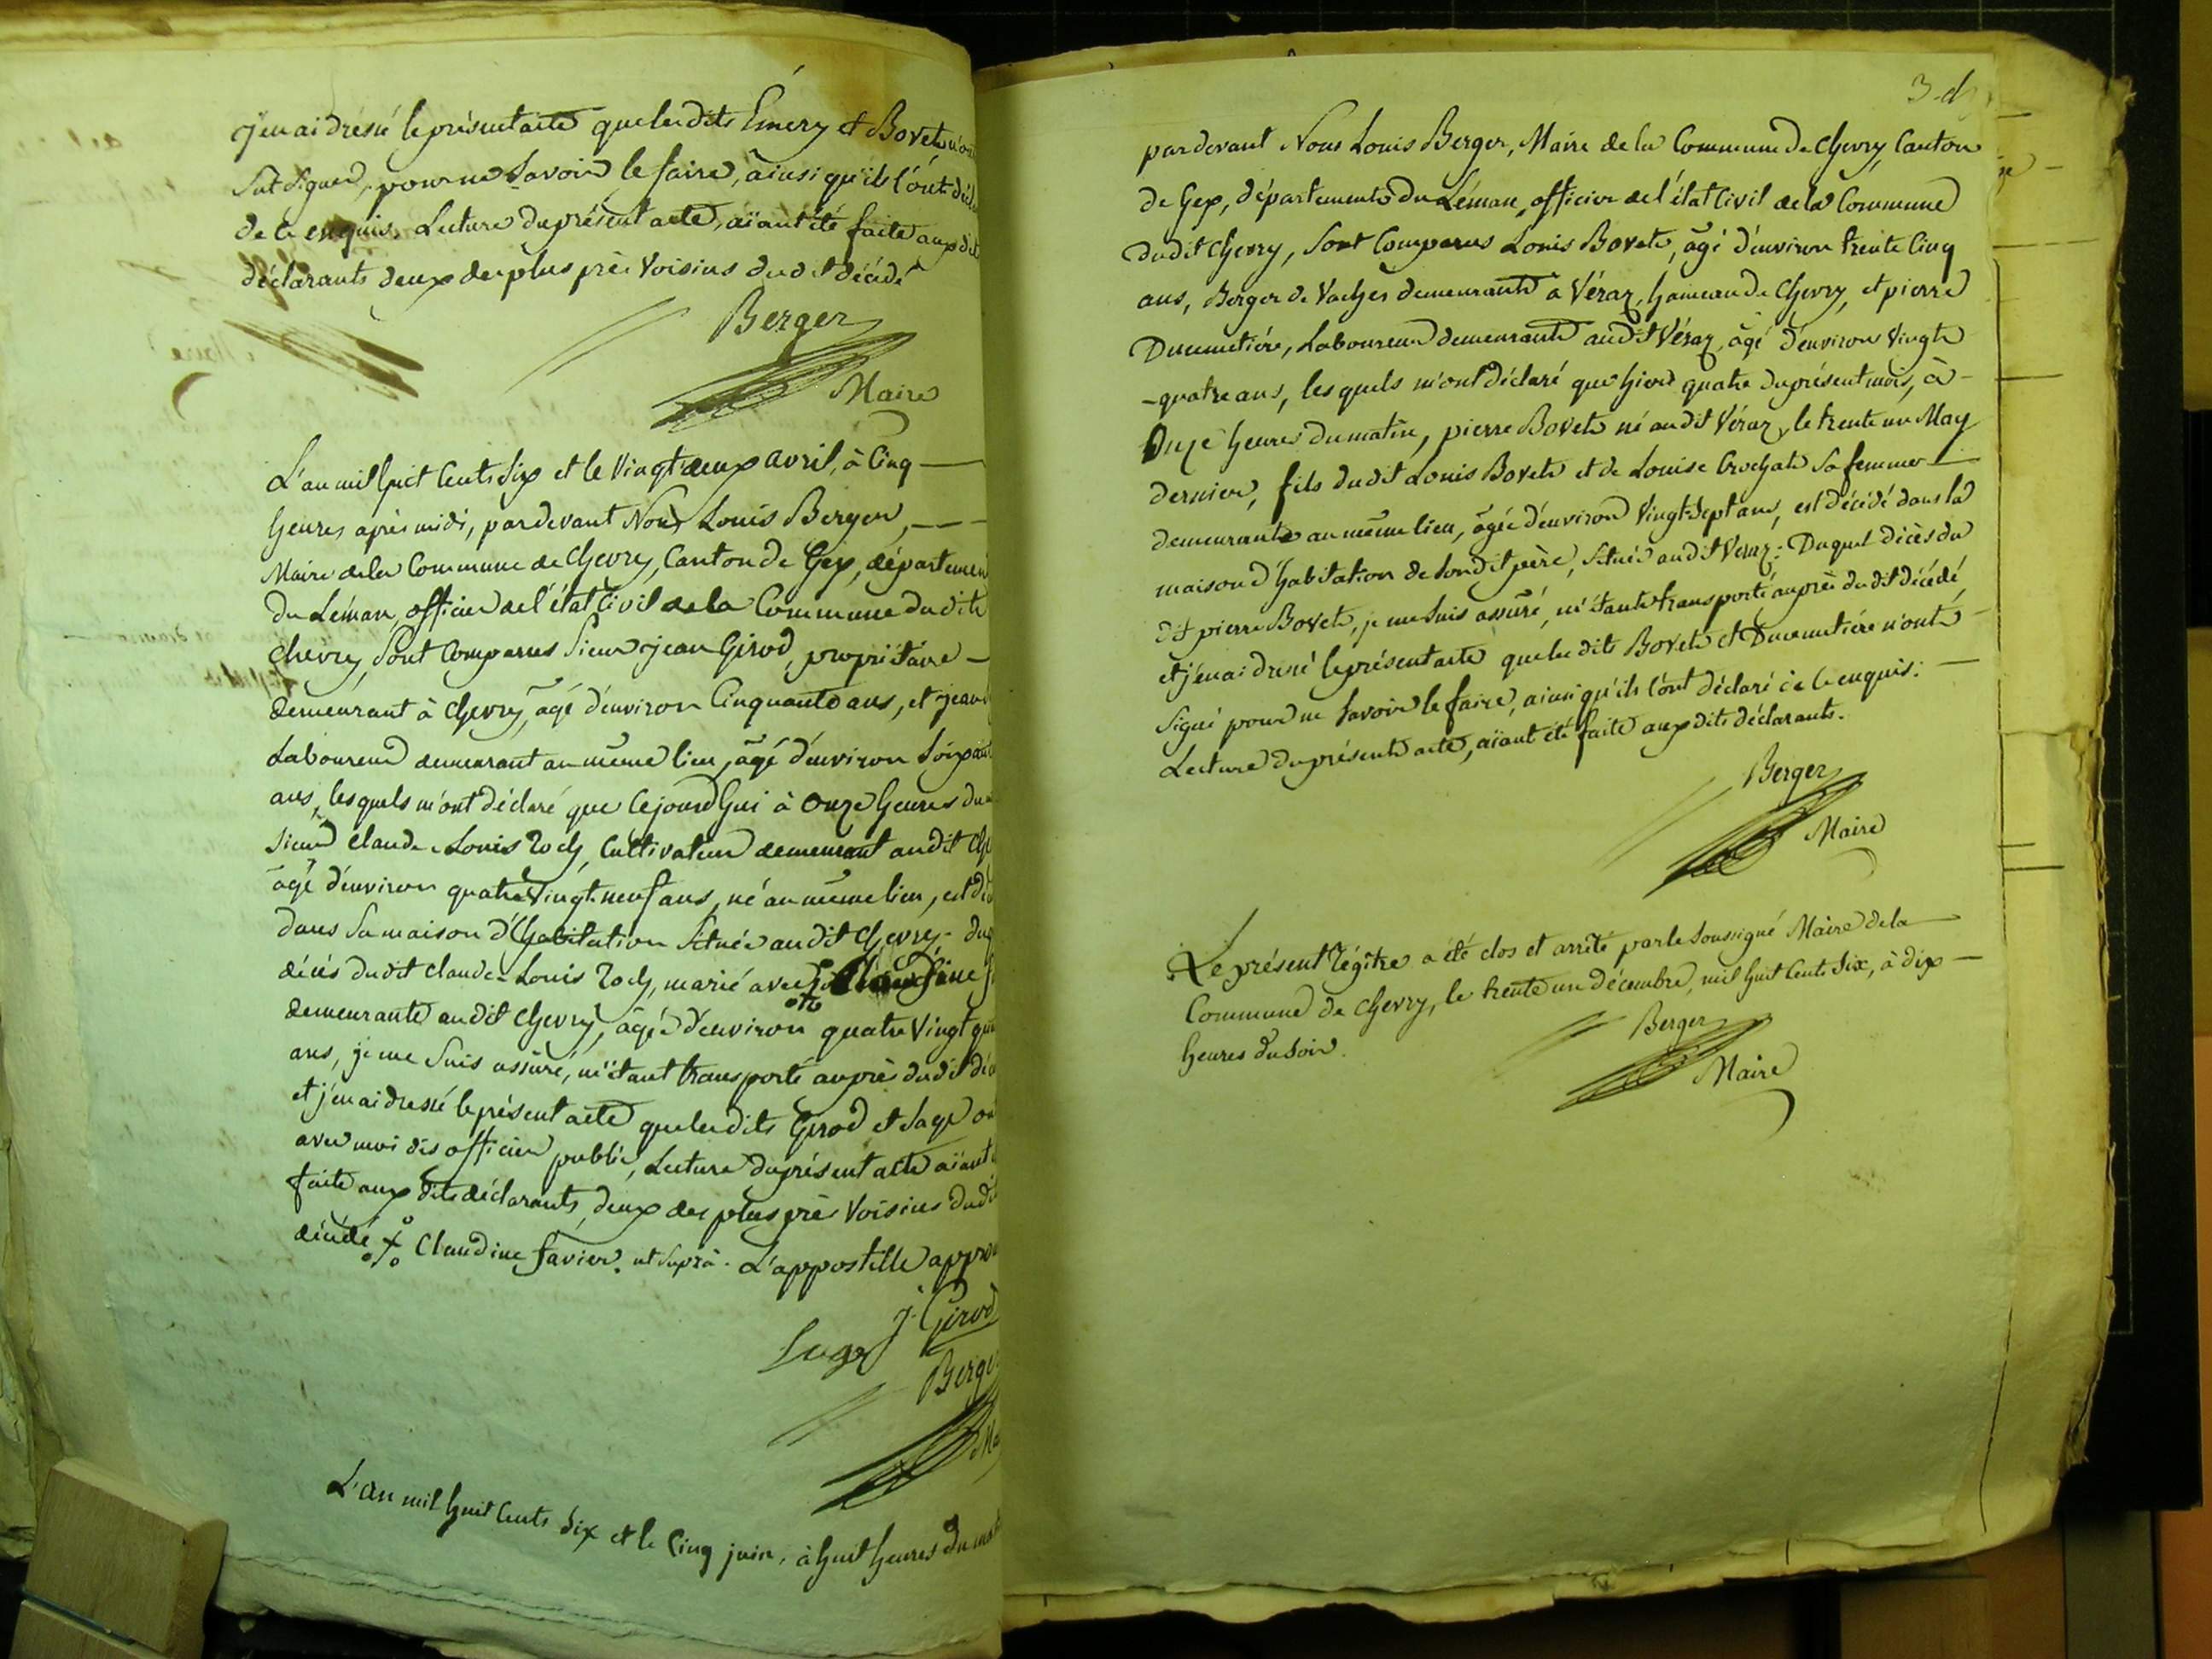 j'en ai dressé le présent acte que les dits Émery et Bovet n'ont
Sut Signer, pour ne Savoir le faire, ainsi qu'ils l'ont
de ce enquis. Lecture du présent acte, aïant été faite aux dits
déclarants deux des plus près Voisins dudit décédé
Berger
Maire
L'an mil huit Cents Six et le Vingt deux avril, à Cinq
heures après midi, pardevant Nous Louis Berger,
Maire de la Commune de Chevry, Canton de Gex, département
du Léman, officier de l'état Civil de la Commune dudit
Chevry, Sont Comparus Sieur jean Girod, propriétaire
demeurant à Chevry, âgé d'environ Cinquante ans, et jean
Laboureur demeurant au même lieu, âgé d'environ Soixante
ans, lesquels m'ont déclaré que Cejourd'hui à Onze heures du
Sieur Claude-Louis Roch, Cultivateur demeurant audit
âgé d'environ quatre Vingt neuf ans, né au même lieu, est
dans Sa maison d'habitation Située audit Chevry; du
décès dudit Claude-Louis Roch, marié avec
demeurante audit Chevry, âgée d'environ quatre Vingt
ans, je me Suis assuré, m'étant transporté auprès dudit
et j'en ai dressé le présent acte que les dits Girod et Sage ont
avec moi dis officier public, Lecture du présent acte aïant
faite aux dits déclarants, deux des plus près Voisins dudit
décédé Claudine favier. ut Suprà. L'appostille
j. Girod
Sage
Berger
L'an mil huit Cents Six et le Cinq juin, à huit heures du
3
pardevant Nous Louis Berger, Maire de la Commune de Chevry, Canton
de Gex, département du Léman, officier de l'état Civil de la Commune
dudit Chevry, Sont Comparus Louis Bovet, âgé d'environ trente Cinq
ans, Berger de Vaches demeurant à Véraz, hameau de Chevry, et pierre
Ducimetière, Laboureur demeurant audit Véraz, âgé d'environ Vingt
-quatre ans, lesquels m'ont déclaré que hier quatre du présent mois, à
Onze heures du matin, pierre Bovet né audit Véraz, le trente un May
dernier, fils dudit Louis Bovet et de Louise Crochat Sa femme
demeurante au même lieu, âgée d'environ Vingt-Sept ans, est décédé dans la
maison d'habitation de Sondit père, Située audit Veraz: Duquel décès du
dit pierre Bovet, je me Suis assuré, m'étant transporté auprès dudit décédé,
et j'en ai dressé le présent acte que les dits Bovet et Ducimetière n'ont
Signé pour ne Savoir le faire, ainsi qu'ils l'ont déclaré de ce enquis.
Lecture du présent acte, aïant été faite aux dits déclarants.
Berger
Maire
Le présent Régître a été clos et arrêté par le Soussigné Maire de la
Commune de Chevry, le trente un décembre, mil huit Cent Six, à dix
heures du Soir.
Berger
Maire